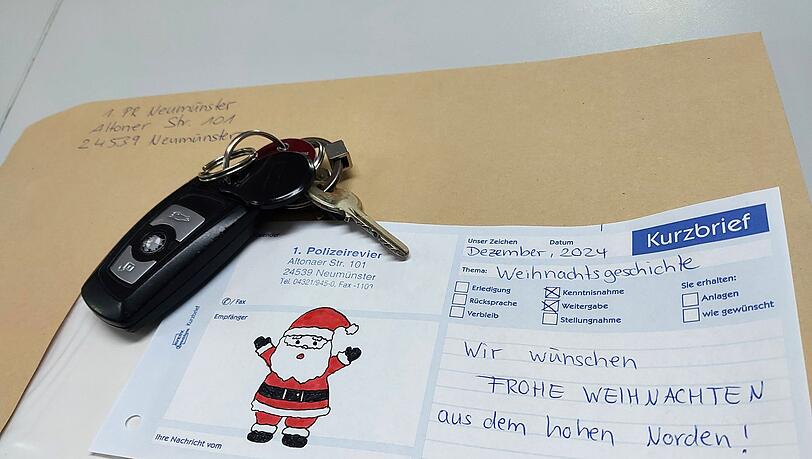 1. PR Neumünster
Altoner Str. 101
24539 Neumünster
Kurzbrief
1. Polizeirevier
Altonaer Str. 101
24539 Neumünster
Tel. 04321/945-0, Fax
✆/ Fax
Empfänger
Ihre Nachricht vom
Kurzbrief
Unser Zeichen Datum
Dezember, 2024
Thema: Weihnachtsgeschichte
Erledigung Kenntnisnahme Sie erhalten:
Rücksprache Weitergabe Anlagen
Verbleib Stellungnahme wie gewünscht
Wir wünschen
FROHE WEIHNACHTEN
aus dem hohen Norden!